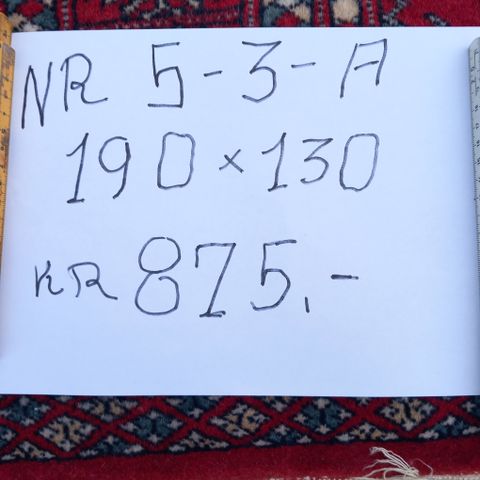 NR 5-3-A
190 x 130
KR 875,-